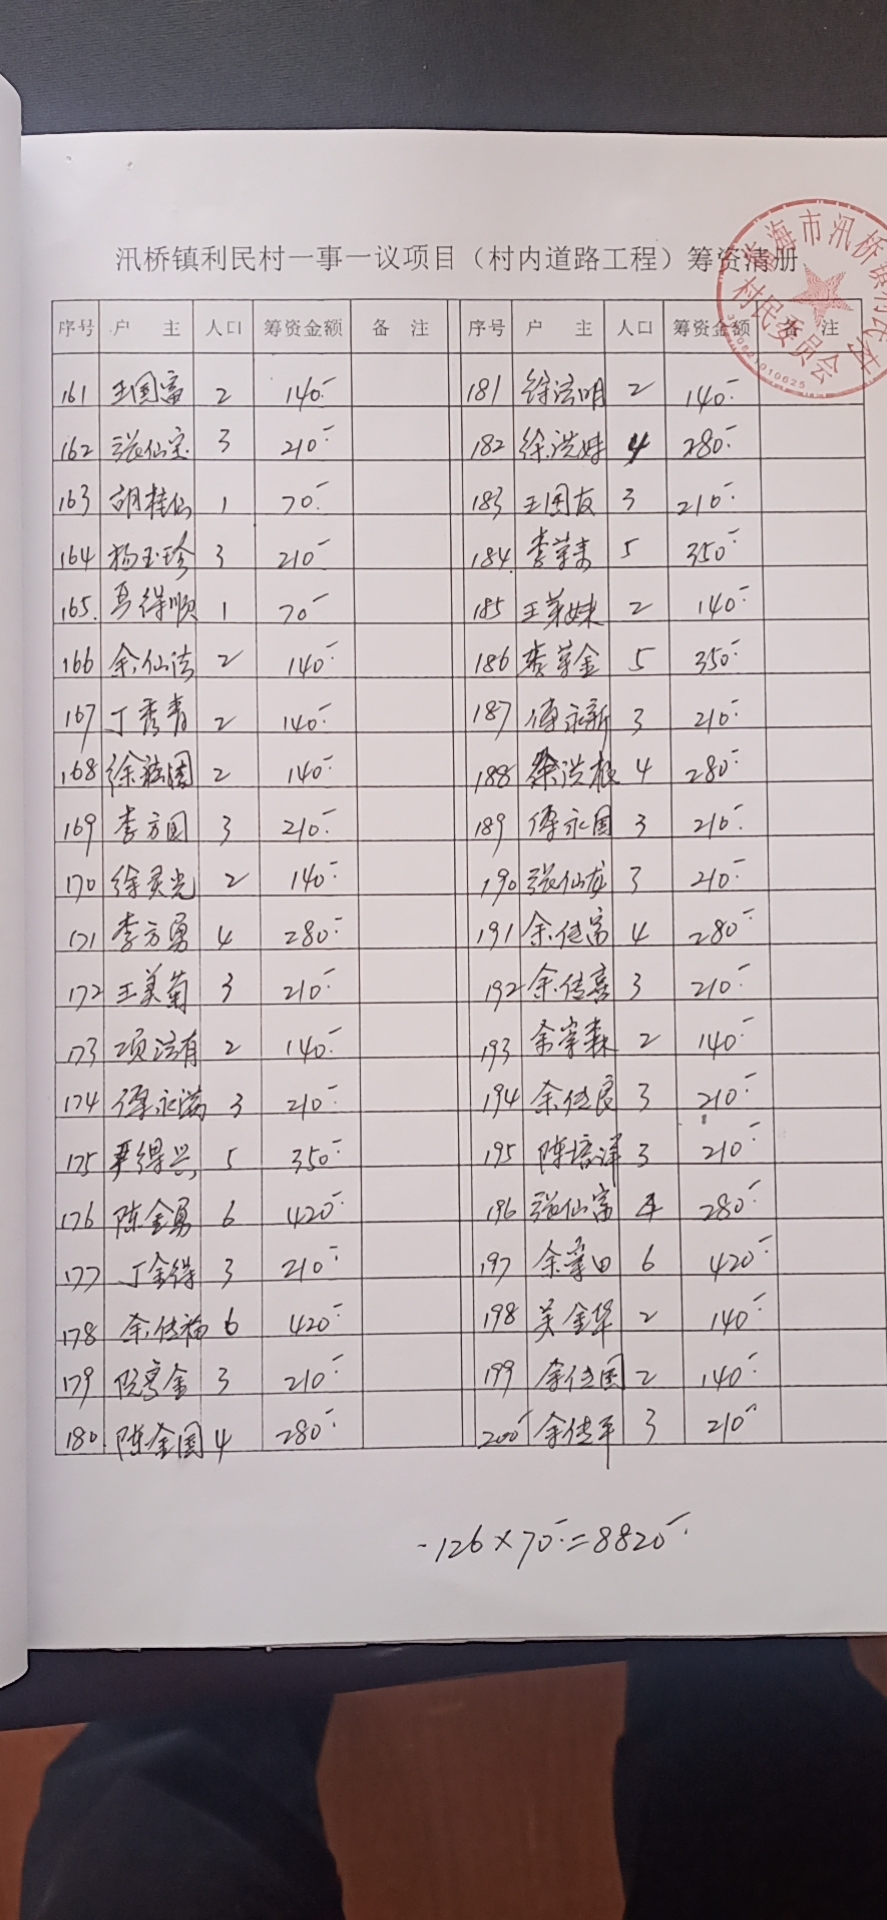 汛桥镇利民村一事一议项目（村内道路工程）筹资清册
临海市汛桥镇利民村
村民委员会
序号 户 主 人口 筹资金额 备 注 序号 户 主 人口 筹资金额 备 注
161 王国富 2 140 181 徐法明 2 140
162 张仙宝 3 210 182 徐洪妹 4 280
163 胡桂仙 1 70 183 王国友 3 210
164 杨玉珍 3 210 184 李荣 5 350
165 马得顺 1 70 185 王弟妹 2 140
166 余仙法 2 140 186 李荣金 5 350
167 丁秀青 2 140 187 傅永新 3 210
168 徐法国 2 140 188 徐洪根 4 280
169 李方国 3 210 189 傅永国 3 210
170 徐灵光 2 140 190 张仙龙 3 210
171 李方勇 4 280 191 余传富 4 280
172 王美菊 3 210 192 余传喜 3 210
173 项法有 2 140 193 余宗森 2 140
174 傅永满 3 210 194 余传良 3 210
175 严得兴 5 350 195 陈培洋 3 210
176 陈金勇 6 420 196 张仙富 4 280
177 丁金得 3 210 197 余 田 6 420
178 余传福 6 420 198 吴金华 2 140
179 金 3 210 199 余传国 2 140
180 陈金国 4 280 200 余传平 3 210
126×70=8820